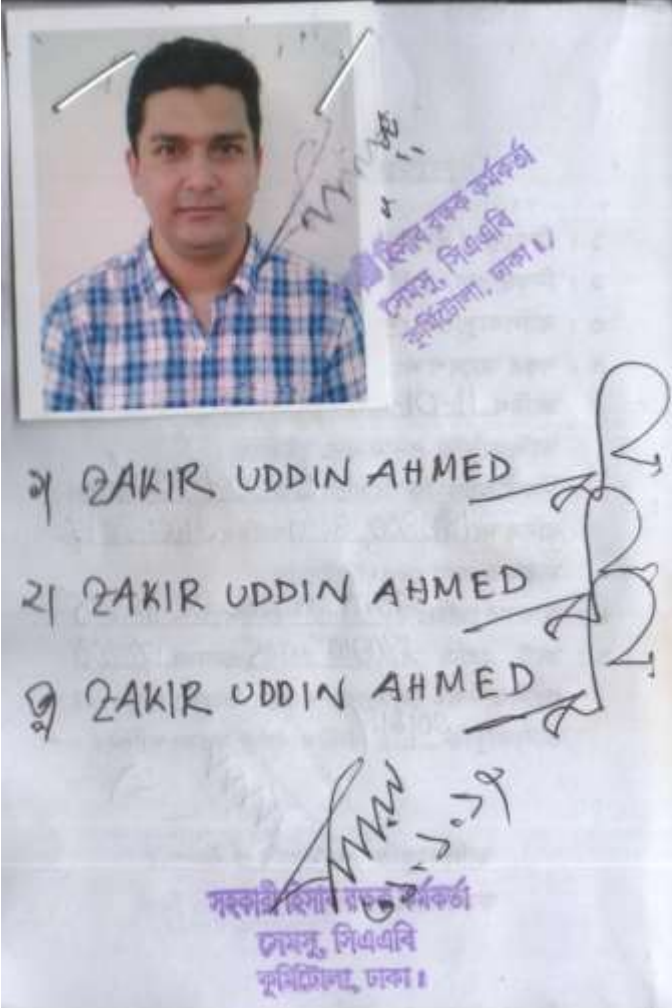 হিসাব রক্ষক কর্মকর্তা
সেমসু, সিএএবি
কুর্মিটোলা, ঢাকা।
১। ZAKIR UDDIN AHMED
২। ZAKIR UDDIN AHMED
৩। ZAKIR UDDIN AHMED
সহকারী হিসাব রক্ষক কর্মকর্তা
সেমসু, সিএএবি
কুর্মিটোলা, ঢাকা।